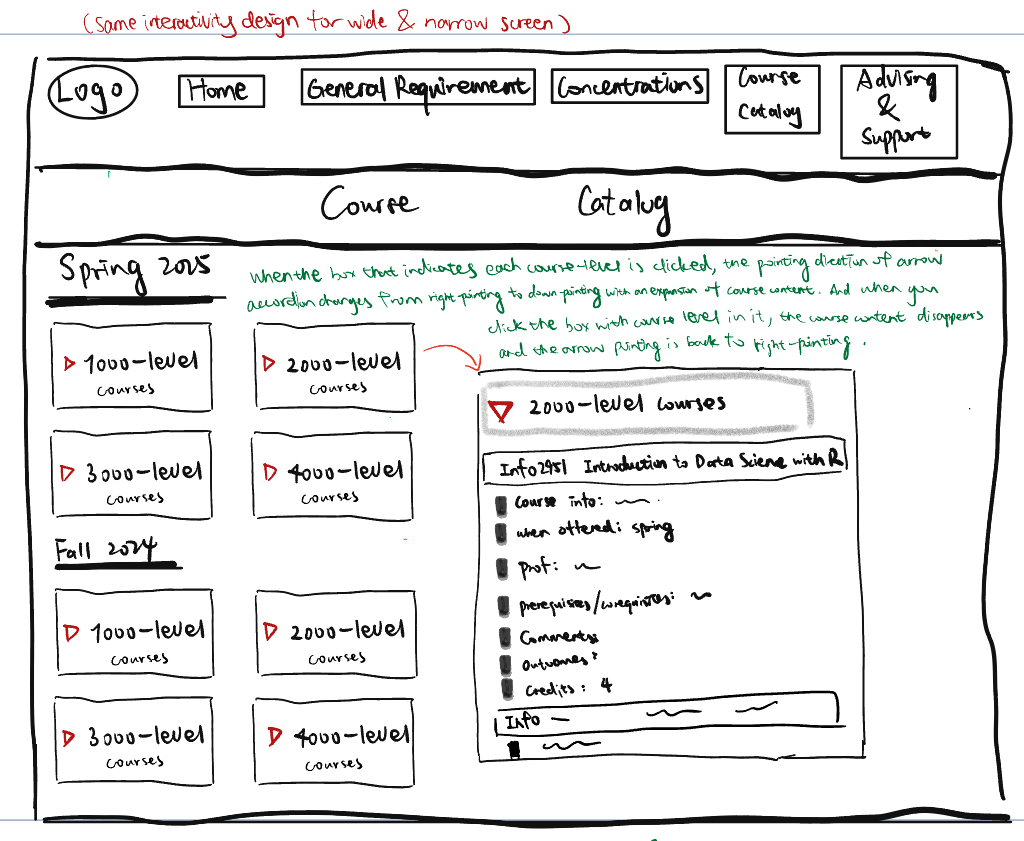 (same interactivity design for wide & narrow screen)
Logo
Home
General Requirement
Concentrations
Course
Catalog
Advising
&
Support
Course Catalog
Spring 2025
when the box that indicates each course-level is clicked, the pointing direction of arrow
accordion changes from right-pointing to down-pointing with an expansion of course content. And when you
click the box with course level in it, the course content disappears
and the arrow pointing is back to right-pointing.
1000-level
courses
2000-level
courses
3000-level
courses
4000-level
courses
Fall 2024
1000-level
courses
2000-level
courses
3000-level
courses
4000-level
courses
2000-level courses
Info2951 Introduction to Data Science with R
Course info:
when offered: spring
prof:
prerequisites/corequisites:
Comments:
Outcomes:
Credits: 4
Info